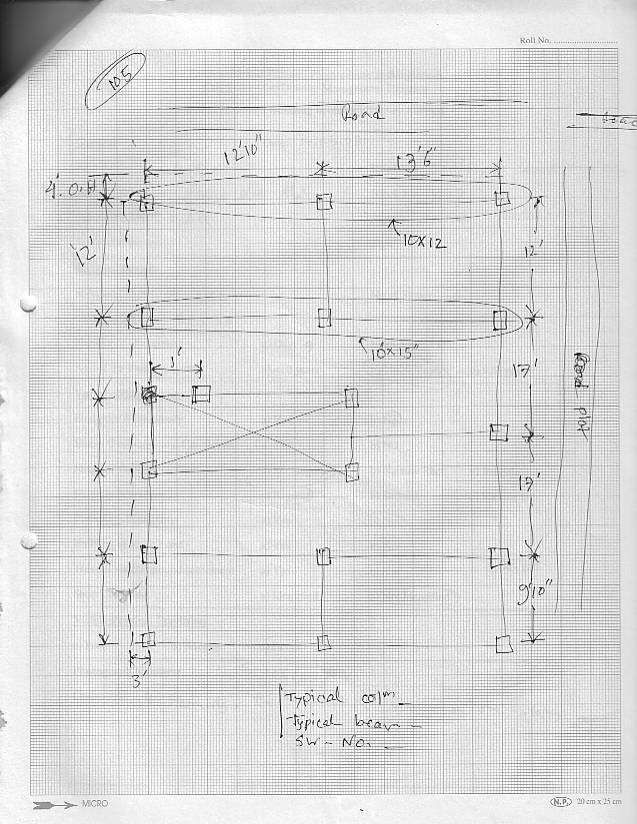 Roll No.
105
Road
12'10"
13'6"
4'.O.H
10x12
12'
12'
10x15"
1'
13'
Road plot
13'
9'10"
3'
Typical colm
Typical beam
SW - No.
MICRO
N.P. 20 cm x 25 cm